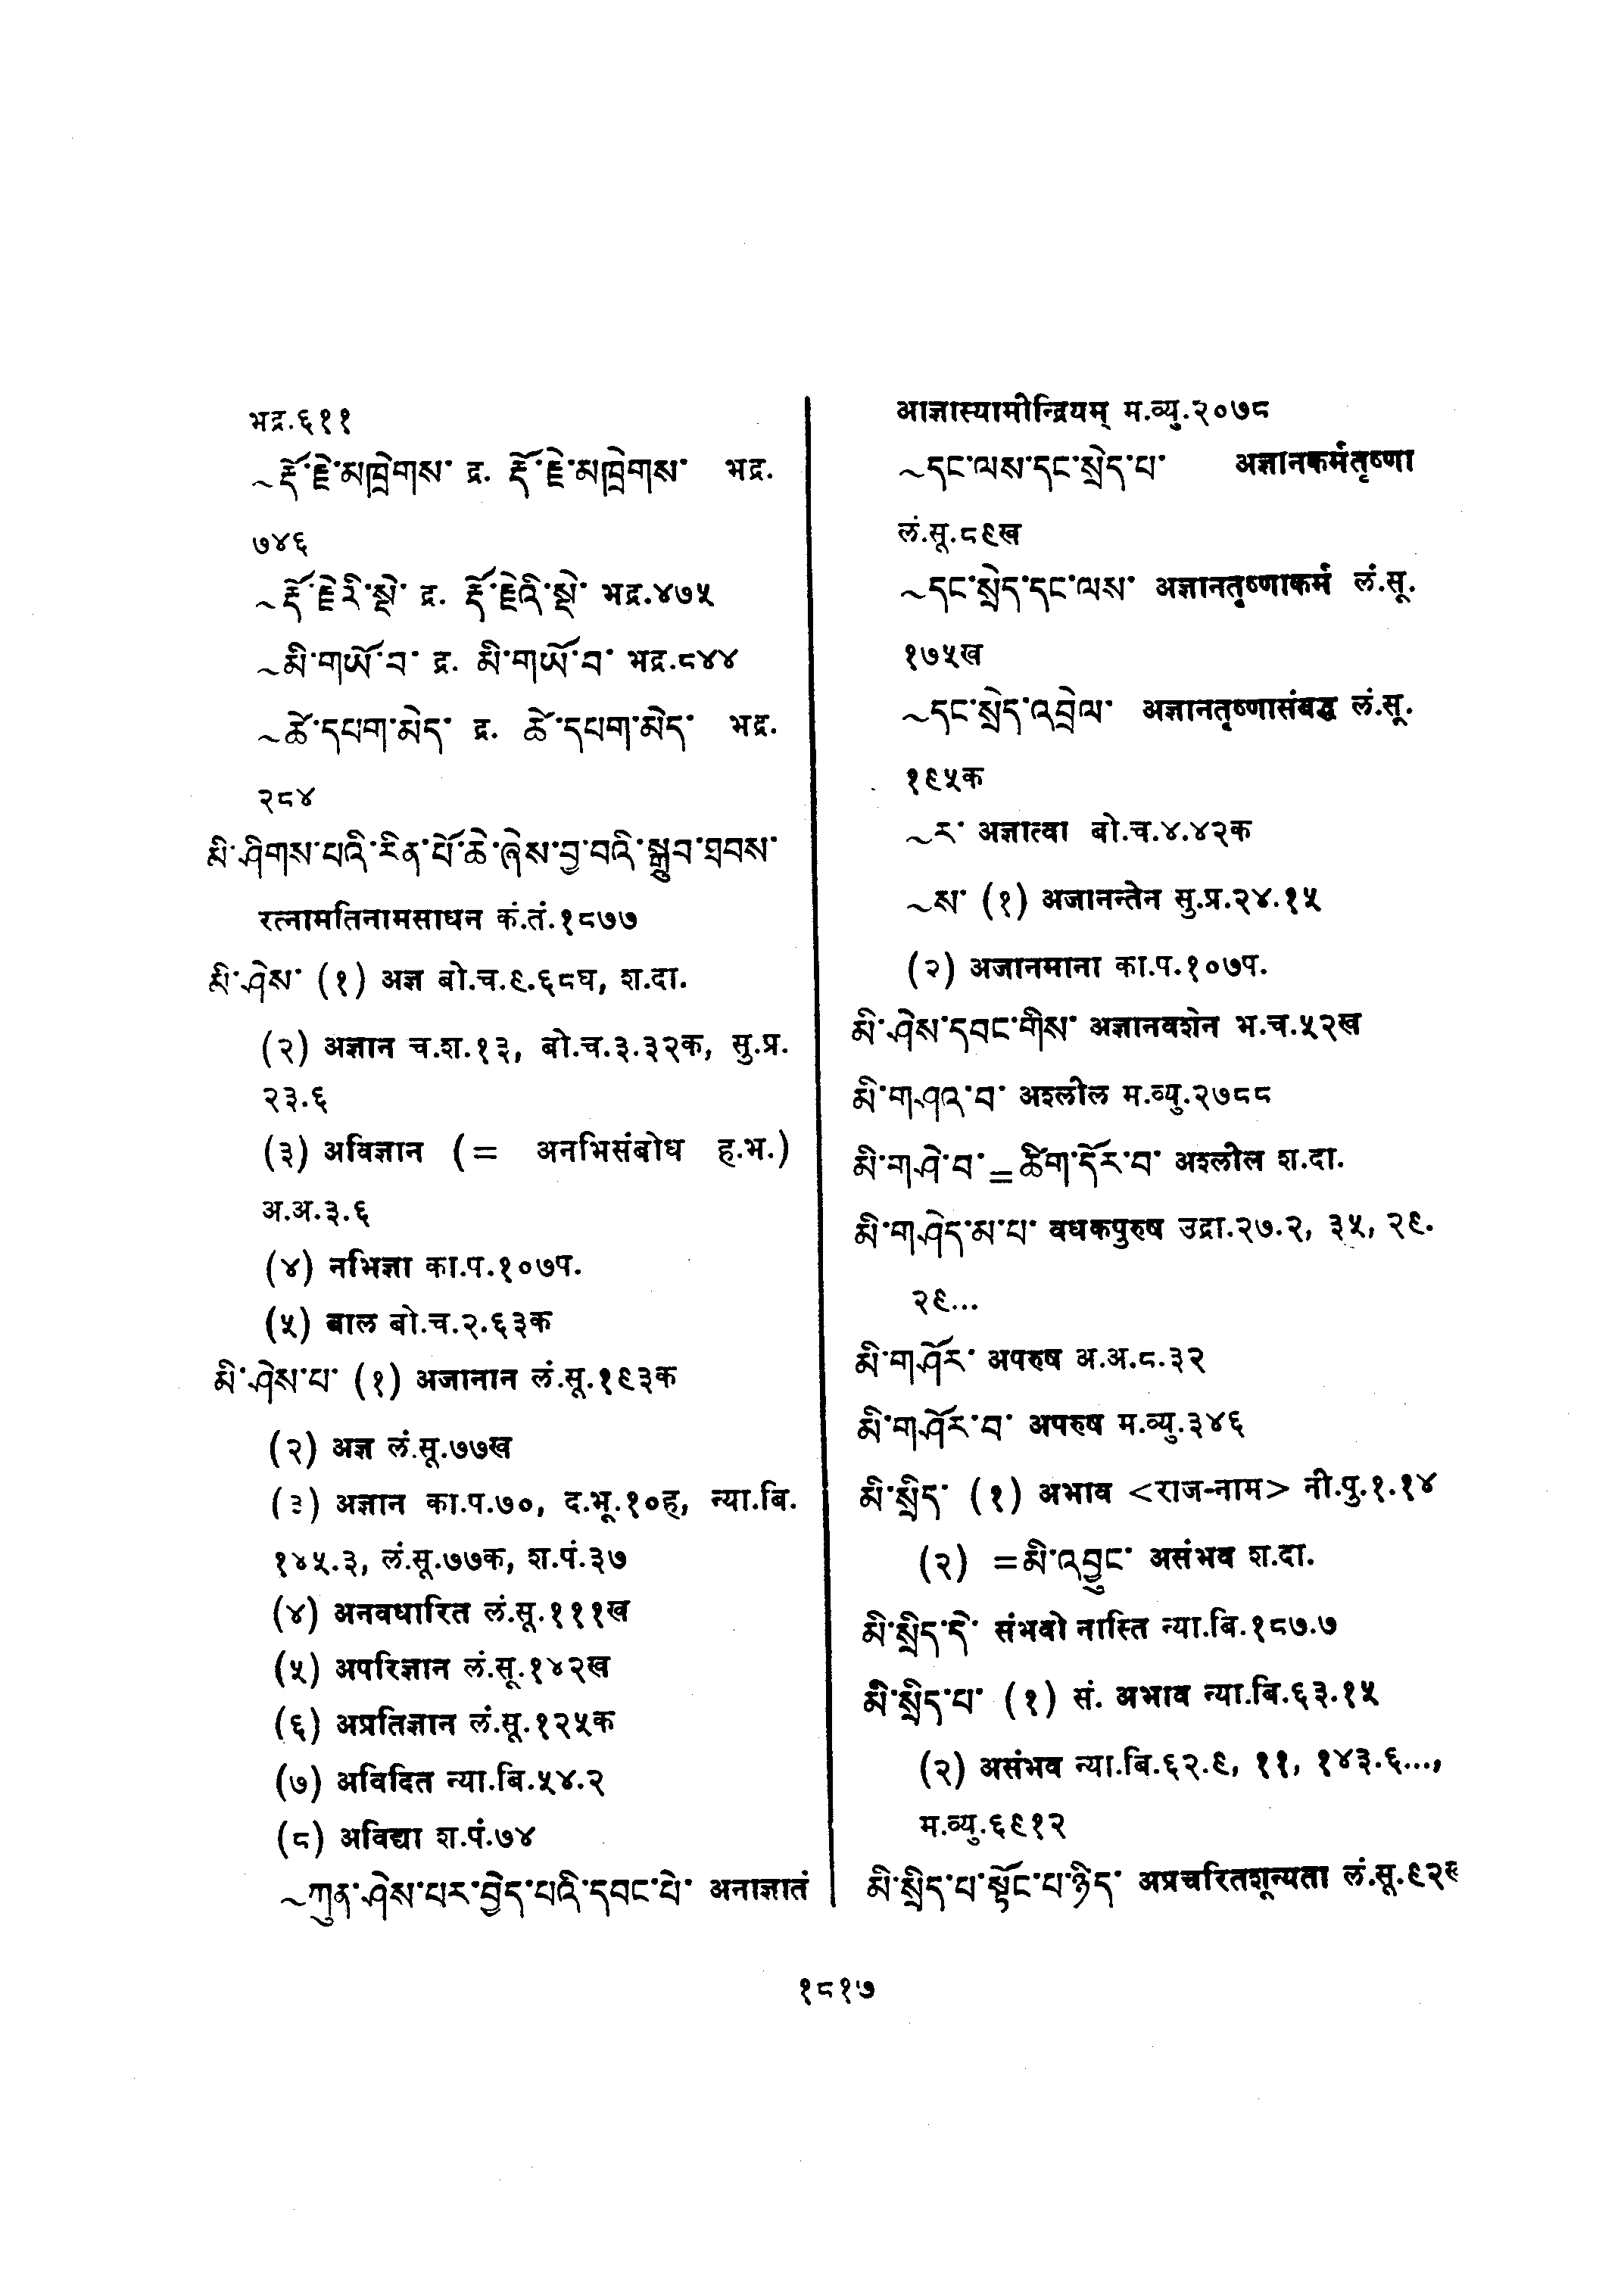 भद्र.६११
~རྡོ་རྗེ་མཁྲེགས་ द्र. རྡོ་རྗེ་མཁྲེགས་ भद्र.
७४६
~རྡོ་རྗེ་རི་སྡེ་ द्र. རྡོ་རྗེའི་སྡེ་ भद्र.४७५
~མི་གཡོ་བ་ द्र. མི་གཡོ་བ་ भद्र.८४४
~ཚེ་དཔག་མེད་ द्र. ཚེ་དཔག་མེད་ भद्र.
२८४
མི་ཤིགས་པའི་རིན་པོ་ཆེ་ཞེས་བྱ་བའི་སྒྲུབ་ཐབས་
रत्नामतिनामसाधन कं.तं.१८७७
མི་ཤེས་ (१) अज्ञ बो.च.९.६८घ, श.दा.
(२) अज्ञान च.श.१३, बो.च.३.३२क, सु.प्र.
२३.६
(३) अविज्ञान (= अनभिसंबोध ह.भ.)
अ.अ.३.६
(४) नभिज्ञा का.प.१०७प.
(५) बाल बो.च.२.६३क
མི་ཤེས་པ་ (१) अजानान लं.सू.१९३क
(२) अज्ञ लं.सू.७७ख
(३) अज्ञान का.प.७०, द.भू.१०ह, न्या.बि.
१४५.३, लं.सू.७७क, श.पं.३७
(४) अनवधारित लं.सू.१११ख
(५) अपरिज्ञान लं.सू.१४२ख
(६) अप्रतिज्ञान लं.सू.१२५क
(७) अविदित न्या.बि.५४.२
(८) अविद्या श.पं.७४
~ཀུན་ཤེས་པར་བྱེད་པའི་དབང་པེ་ अनाज्ञातं
आज्ञास्यामीन्द्रियम् म.व्यु.२०७८
~དང་ལས་དང་སྲེད་པ་ अज्ञानकर्मतृष्णा
लं.सू.८९ख
~དང་སྲེད་དང་ལས་ अज्ञानतृष्णाकर्म लं.सू.
१७५ख
~དང་སྲེད་འབྲེལ་ अज्ञानतृष्णासंबद्ध लं.सू.
१९५क
~ར་ अज्ञात्वा बो.च.४.४२क
~ས་ (१) अजानन्तेन सु.प्र.२४.१५
(२) अजानमाना का.प.१०७प.
མི་ཤེས་དབང་གིས་ अज्ञानवशेन भ.च.५२ख
མི་གཤའ་བ་ अश्लील म.व्यु.२७८८
མི་གཤེ་བ་=ཚིག་དོར་བ་ अश्लील श.दा.
མི་གཤེད་མ་པ་ वधकपुरुष उद्रा.२७.२, ३५, २९.
२९...
མི་གཤོར་ अपरुष अ.अ.८.३२
མི་གཤོར་བ་ अपरुष म.व्यु.३४६
མི་སྲིད་ (१) अभाव <राज-नाम> नी.पु.१.१४
(२) =མི་འབྱུང་ असंभव श.दा.
མི་སྲིད་དེ་ संभवो नास्ति न्या.बि.१८७.७
མི་སྲིད་པ་ (१) सं. अभाव न्या.बि.६३.१५
(२) असंभव न्या.बि.६२.९, ११, १४३.६...,
म.व्यु.६९१२
མི་སྲིད་པ་སྟོང་པ་ཉིད་ अप्रचरितशून्यता लं.सू.९२ख
१८१७